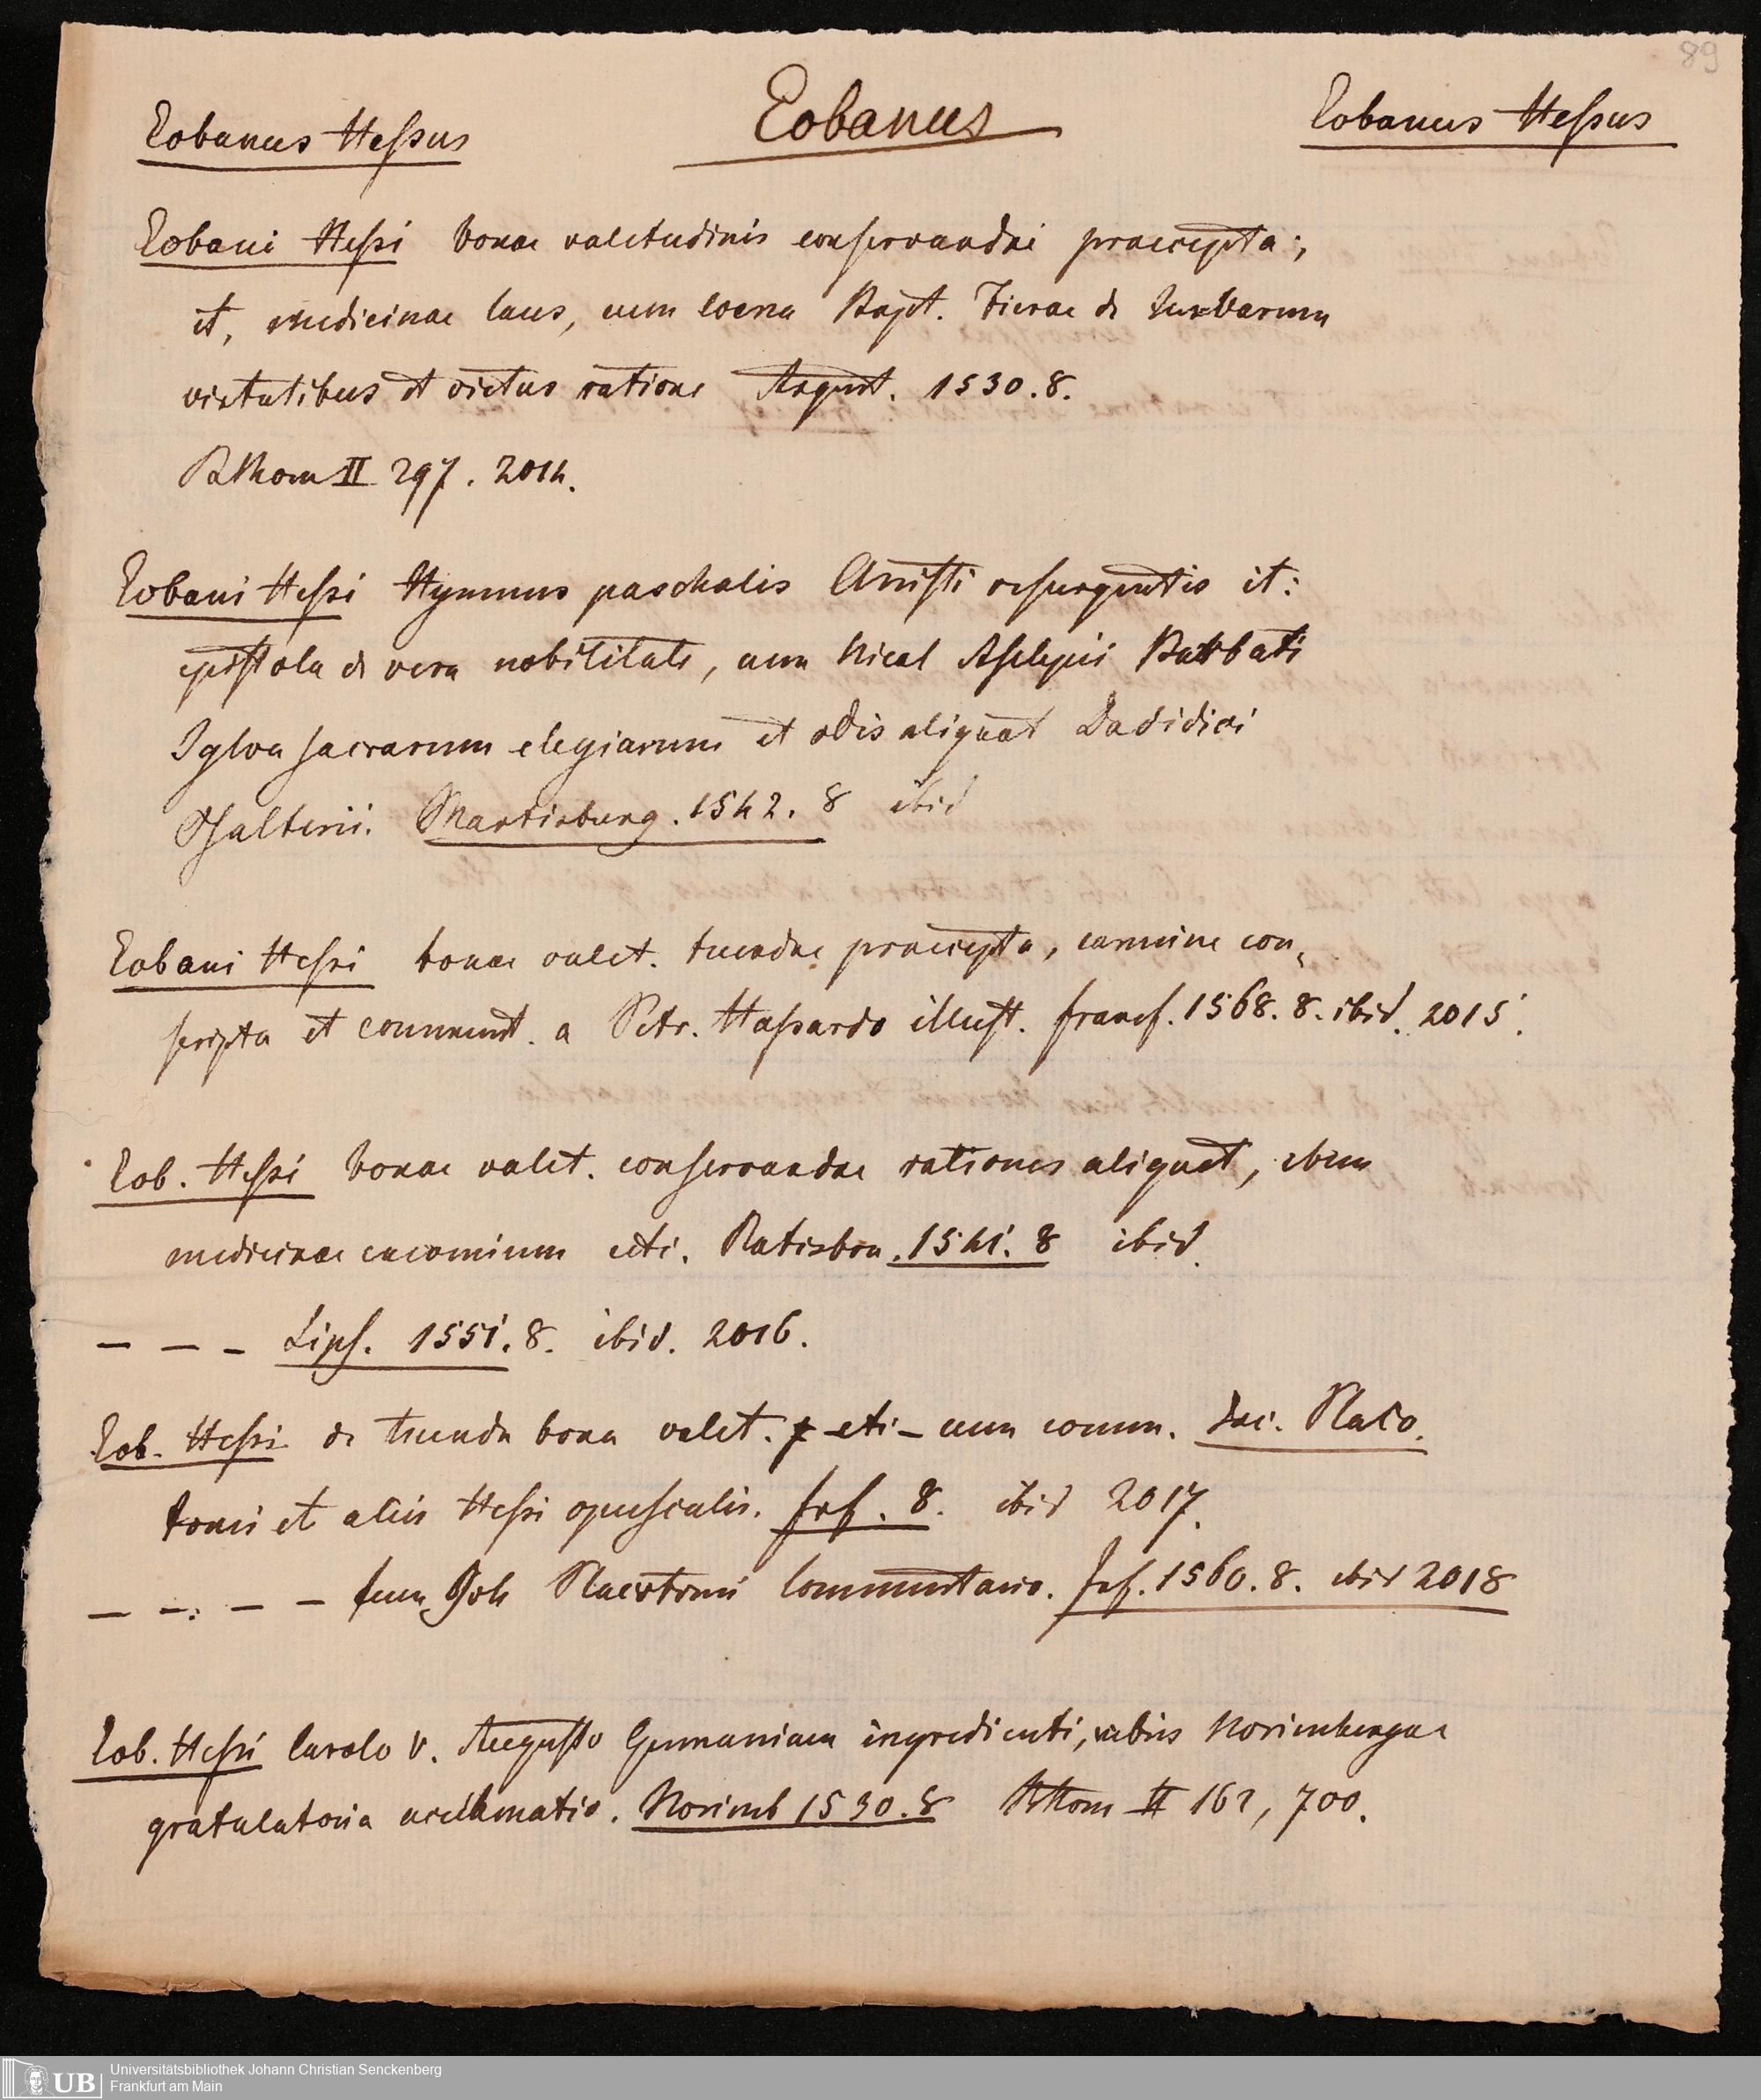 89
Eobanus Heſsus Eobanus Eobanus Heſsus
Eobani Heſsi bonae valetudinis conservandae praecepta;
et, medicinae laus, cum coena Bapt. Fierae de herbarum
virtutibus et victus ratione August. 1530. 8.
BThom II 297. 2014.
Eobani Heſsi Hymnus paschalis Christi resurgentis it:
epistola de vera nobilitate, cum Nicol Asclepii Barbati
Sylva sacrarum elegiarum et odis aliquot Davidici
Psalterii. Martisburg. 1542. 8 ibid
Eobani Heſsi bonae valet. tuendae praecepta, carmine con-
scripta et comment. a Petr. Haſsardo illust. francf. 1568. 8. ibid. 2015.
Eob. Heſsi bonae valet. conservandae rationes aliquot, ejusdem
medicinae encomium etc. Ratisbon. 1541. 8 ibid.
— — — Lips. 1551. 8. ibid. 2016.
Eob. Heſsi de tuenda bona valet. – etc – cum comm. Jac. Placo
tomi et aliis Heſsi opusculis. frf. 8. ibid 2017.
— — — — cum Joh Placotomi Commentario. frf. 1560. 8. ibid 2018
Eob. Heſsi Carolo V. Augusto Germaniam ingredienti, urbis Norimbergae
gratulatoria acclamatio. Norimb 1530. 8 BThom II 162, 700.
UB Universitätsbibliothek Johann Christian Senckenberg
Frankfurt am Main